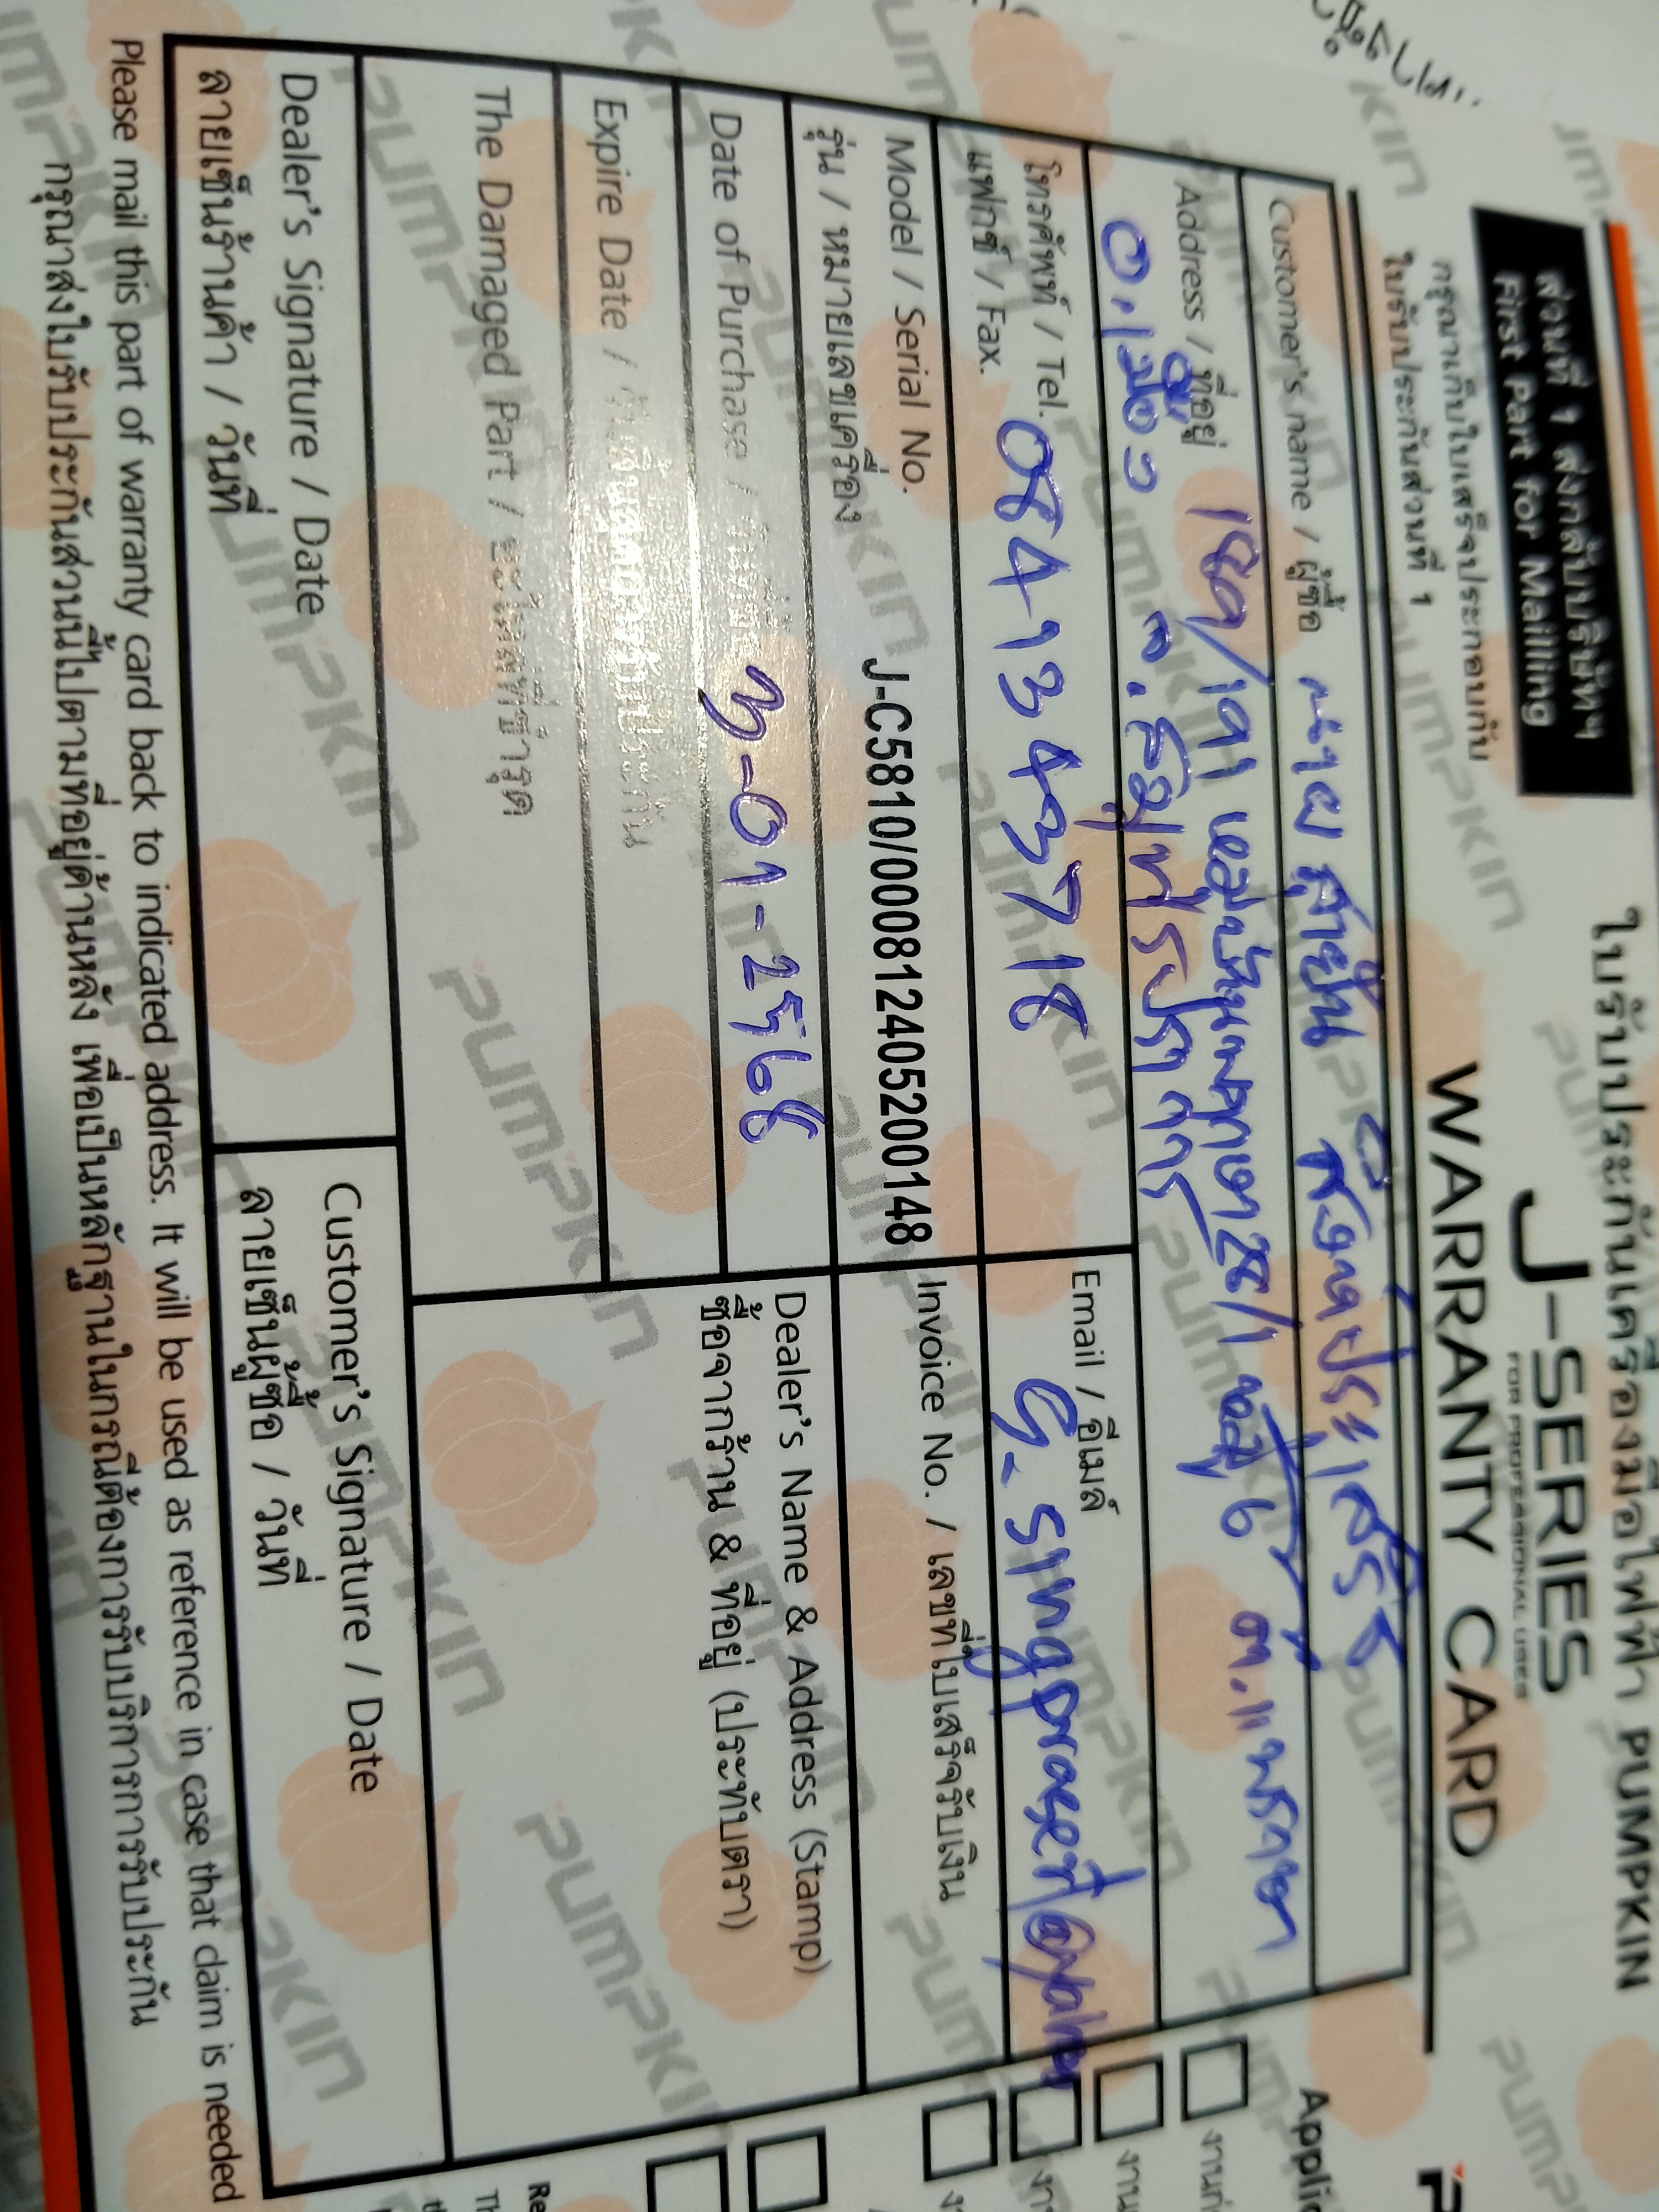 ใบรับประกันเครื่องมือไฟฟ้า PUMPKIN
J-SERIES
FOR PROFESSIONAL USES
WARRANTY CARD
ส่วนที่ 1 ส่งกลับบริษัทฯ
First Part for Mailling
กรุณาเก็บใบเสร็จประกอบกับ
ใบรับประกันส่วนที่ 1
Customer's name / ผู้ซื้อ นาย สายัน สิงห์ประเสริฐ
Address / ที่อยู่ 189/191 ซอย 6 ต.แพรกษา
อ.เมือง จ.สมุทรปราการ
โทรศัพท์ / Tel. 0841343718
แฟกซ์ / Fax.
Email / อีเมล์
Model / Serial No. J-C5810/00081240520 0148
รุ่น / หมายเลขเครื่อง
Invoice No. / เลขที่ใบเสร็จรับเงิน
Date of Purchase / วันที่ซื้อ 3-01-2568
Dealer's Name & Address (Stamp)
ซื้อจากร้าน & ที่อยู่ (ประทับตรา)
Expire Date / วันสิ้นสุดการรับประกัน
The Damaged Part / อะไหล่ที่ชำรุด
Dealer's Signature / Date
ลายเซ็นร้านค้า / วันที่
Customer's Signature / Date
ลายเซ็นผู้ซื้อ / วันที่
Please mail this part of warranty card back to indicated address. It will be used as reference in case that claim is needed
กรุณาส่งใบรับประกันส่วนนี้ไปตามที่อยู่ด้านหลัง เพื่อเป็นหลักฐานในกรณีต้องการรับบริการการรับประกัน